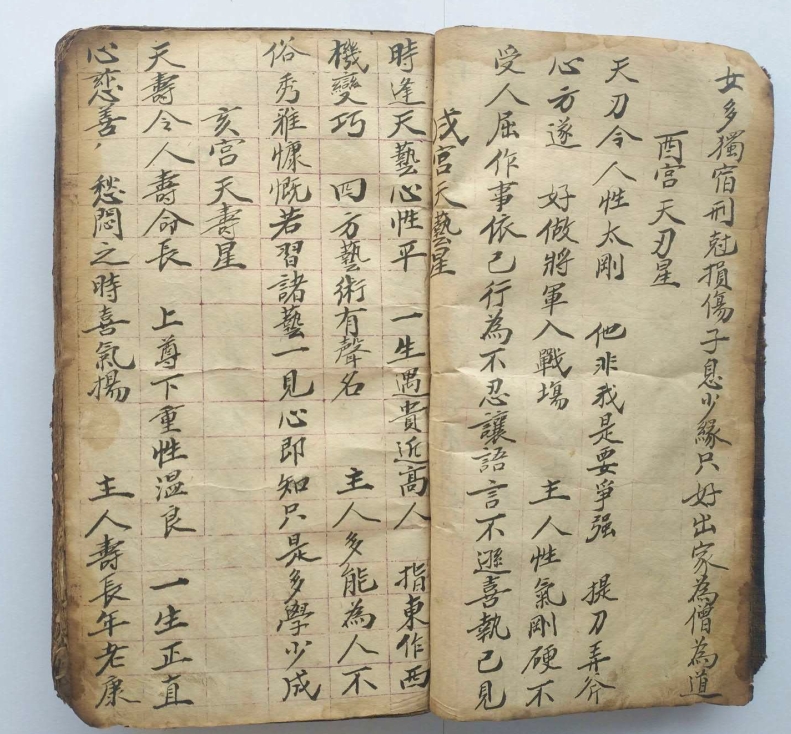 女多獨宿刑尅損傷子息少緣只好出家為僧為道
酉宮天刃星
天刃令人性太剛 他非我是要爭强 提刀弄斧
心方遂 好做將軍入戰場 主人性氣剛硬不
受人屈作事依己行為不忍讓語言不遜喜執己見
戌宮天藝星
時逢天藝心性平 一生遇貴近高人 指東作西
機變巧 四方藝術有聲名 主人多能為人不
俗秀雅慷慨若習諸藝一見心即知只是多學少成
亥宮天壽星
天壽令人壽命長 上尊下重性温良 一生正直
心慈善 愁悶之時喜氣揚 主人壽長年老康